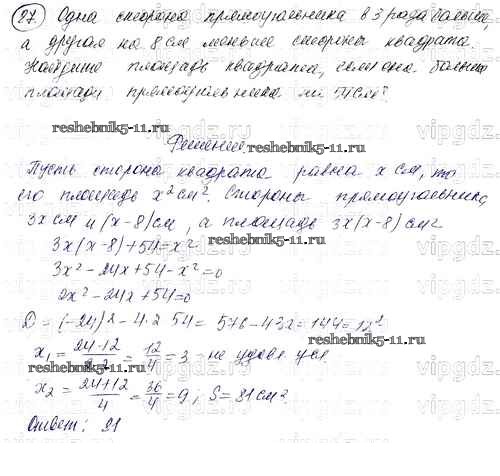 27 Одна сторона прямоугольника в 3 раза больше,
а другая на 8 см меньше стороны квадрата.
Найдите площадь квадрата, если она больше
площади прямоугольника на 54 см².
reshebnik5-11.ru
Решение
Пусть сторона квадрата равна x см, то
его площадь x² см². Стороны прямоугольника
3x см и (x-8) см, а площадь 3x(x-8) см²
3x(x-8)+54=x²
reshebnik5-11.ru
3x²-24x+54-x²=0
2x²-24x+54=0
D = (-24)²-4·2·54 = 576-432 = 144 = 12²
x₁ = (24-12)/(2·2) = 12/4 = 3 - не удовл усл.
x₂ = (24+12)/4 = 36/4 = 9; S = 81 см².
reshebnik5-11.ru
Ответ: 81
vipgdz.ru